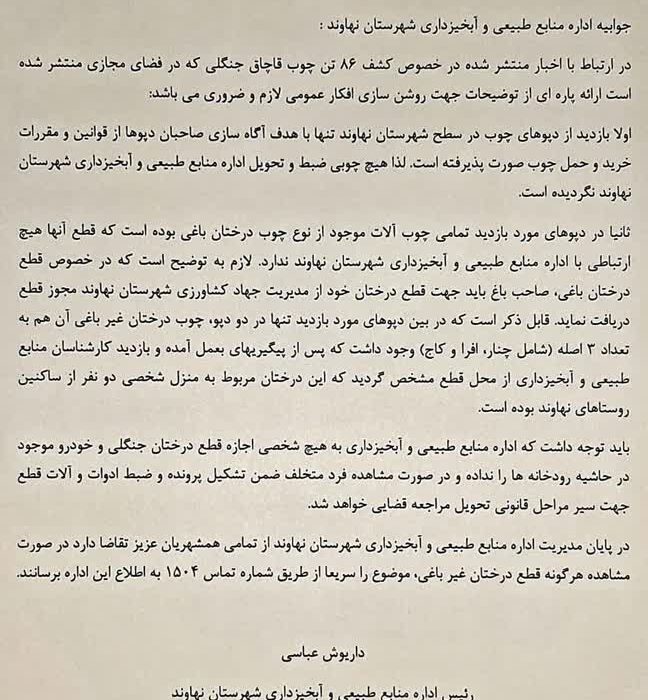 جوابیه اداره منابع طبیعی و آبخیزداری شهرستان نهاوند :
در ارتباط با اخبار منتشر شده در خصوص کشف ۸۶ تن چوب قاچاق جنگلی که در فضای مجازی منتشر شده
است ارائه پاره ای از توضیحات جهت روشن سازی افکار عمومی لازم و ضروری می باشد:
اولا بازدید از دپوهای چوب در سطح شهرستان نهاوند تنها با هدف آگاه سازی صاحبان دپوها از قوانین و مقررات
خرید و حمل چوب صورت پذیرفته است. لذا هیچ چوبی ضبط و تحویل اداره منابع طبیعی و آبخیزداری شهرستان
نهاوند نگردیده است.
ثانیا در دپوهای مورد بازدید تمامی چوب آلات موجود از نوع چوب درختان باغی بوده است که قطع آنها هیچ
ارتباطی با اداره منابع طبیعی و آبخیزداری شهرستان نهاوند ندارد. لازم به توضیح است که در خصوص قطع
درختان باغی، صاحب باغ باید جهت قطع درختان خود از مدیریت جهاد کشاورزی شهرستان نهاوند مجوز قطع
دریافت نماید. قابل ذکر است که در بین دپوهای مورد بازدید تنها در دو دپو، چوب درختان غیر باغی آن هم به
تعداد ۳ اصله (شامل چنار، افرا و کاج) وجود داشت که پس از پیگیریهای بعمل آمده و بازدید کارشناسان منابع
طبیعی و آبخیزداری از محل قطع مشخص گردید که این درختان مربوط به منزل شخصی دو نفر از ساکنین
روستاهای نهاوند بوده است.
باید توجه داشت که اداره منابع طبیعی و آبخیزداری به هیچ شخصی اجازه قطع درختان جنگلی و خودرو موجود
در حاشیه رودخانه ها را نداده و در صورت مشاهده فرد متخلف ضمن تشکیل پرونده و ضبط ادوات و آلات قطع
جهت سیر مراحل قانونی تحویل مراجعه قضایی خواهد شد.
در پایان مدیریت اداره منابع طبیعی و آبخیزداری شهرستان نهاوند از تمامی همشهریان عزیز تقاضا دارد در صورت
مشاهده هرگونه قطع درختان غیر باغی، موضوع را سریعا از طریق شماره تماس ۱۵۰۴ به اطلاع این اداره برسانند.
داریوش عباسی
رئیس اداره منابع طبیعی و آبخیزداری شهرستان نهاوند